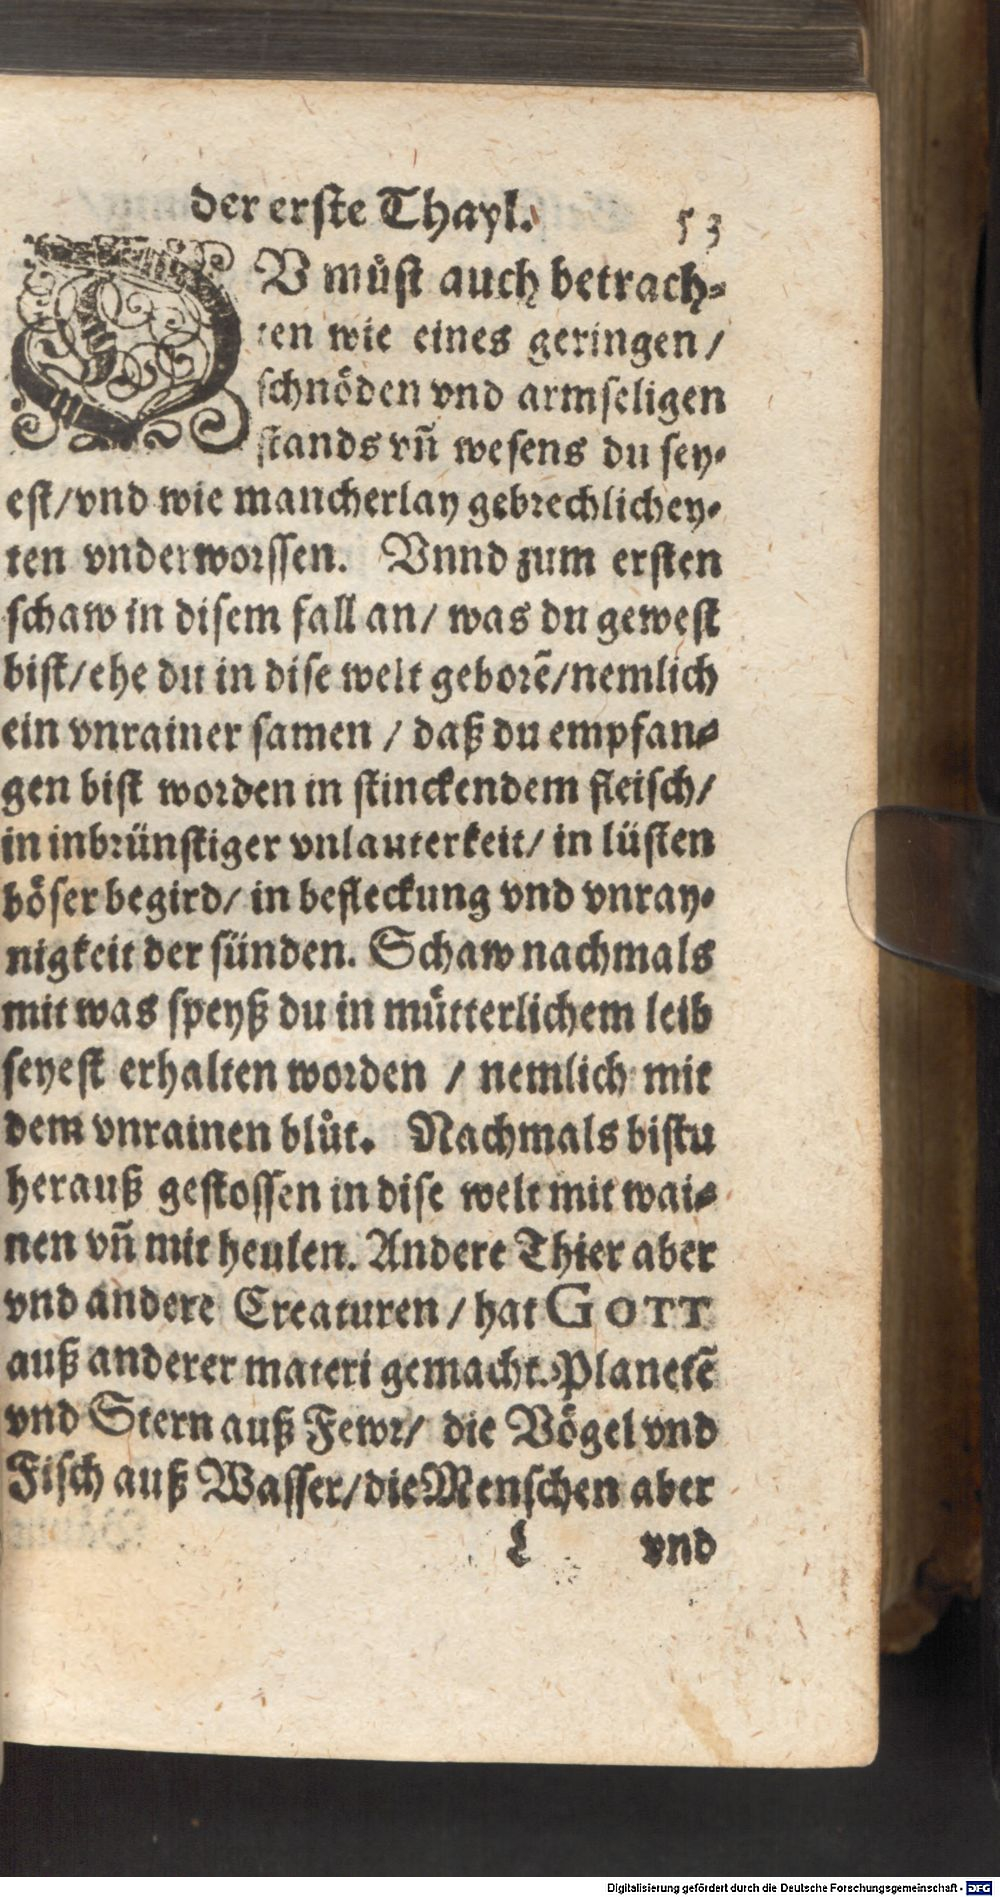 der erste Thayl. 53
DV můst auch betrach-
ten wie eines geringen/
schnöden vnd armseligen
stands vñ wesens du sey-
est/vnd wie mancherlay gebrechlichey-
ten vnderworffen. Vnnd zum ersten
schaw in disem fall an/ was du gewest
bist/ehe du in dise welt geborẽ/nemlich
ein vnrainer samen / daß du empfan-
gen bist worden in stinckendem fleisch/
in inbrünstiger vnlauterkeit/ in lüsten
böser begird/ in befleckung vnd vnray-
nigkeit der sünden. Schaw nachmals
mit was speyß du in mütterlichem leib
seyest erhalten worden / nemlich mit
dem vnrainen blůt. Nachmals bistu
herauß gestossen in dise welt mit wai-
nen vñ mit heulen. Andere Thier aber
vnd andere Creaturen/ hat GOTT
auß anderer materi gemacht. Planetẽ
vnd Stern auß Fewr/ die Vögel vnd
Fisch auß Wasser/die Menschen aber
vnd
Digitalisierung gefördert durch die Deutsche Forschungsgemeinschaft - DFG